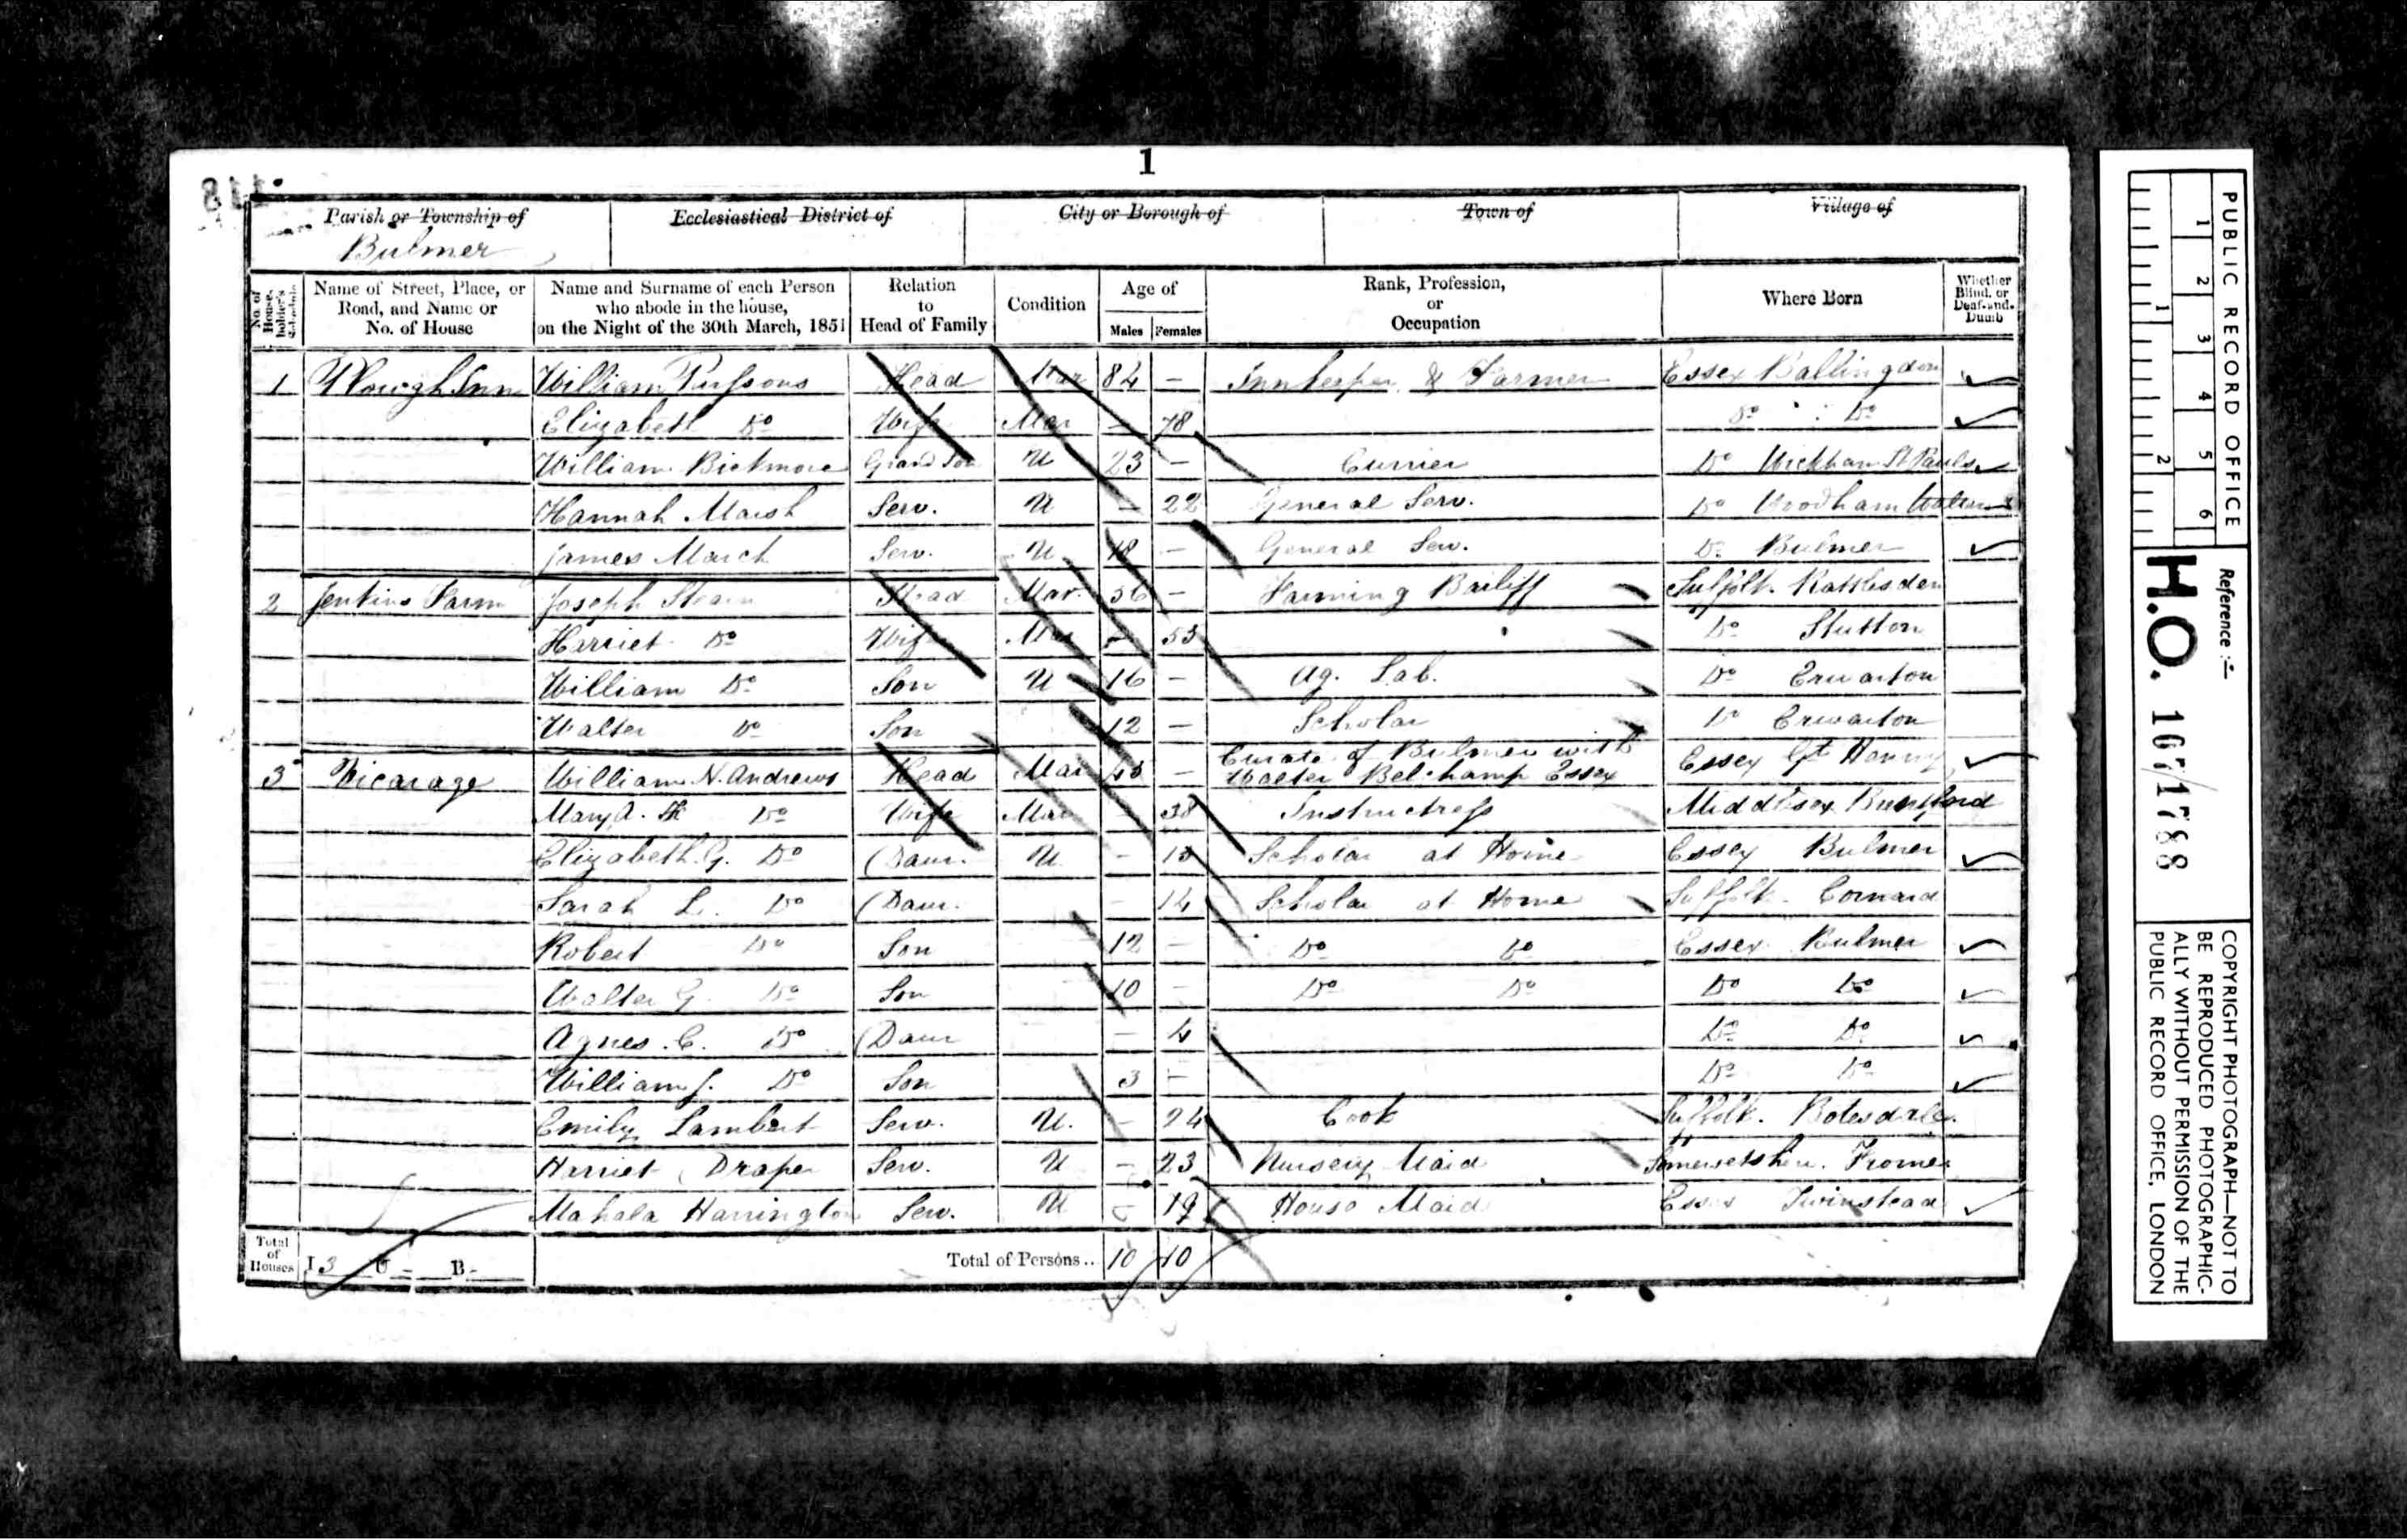 1
Parish or Township of
Bulmer
Ecclesiastical District of
City or Borough of
Town of
Village of
No. of House-holder's Schedule
Name of Street, Place, or Road, and Name or No. of House
Name and Surname of each Person who abode in the house, on the Night of the 30th March, 1851
Relation to Head of Family
Condition
Age of
Males Females
Rank, Profession, or Occupation
Where Born
Whether Blind, or Deaf-and-Dumb
1 Plough Inn William Parsons Head Mar 84 - Innkeeper & Farmer Essex Ballingdon
Elizabeth Do Wife Mar - 78 Do Do
William Bickmore Grand Son U 23 - Currier Do Wickham St Pauls
Hannah Marsh Serv. U - 22 General Serv. Do Woodham
James March Serv. U 18 - General Serv. Do Bulmer
2 Jenkins Farm Joseph Stearn Head Mar. 56 - Farming Bailiff Suffolk Rattlesden
Harriet Do Wife Mar - 55 Do Stutton
William Do Son U 16 - Ag. Lab. Do Erwarton
Walter Do Son 12 - Scholar Do Erwarton
3 Vicarage William N. Andrews Head Mar - Curate of Bulmer with Walter Belchamp Essex Essex Gt Henny
Mary A. Do Wife Mar - 38 Instructress Middlesex
Elizabeth G. Do Daur. U - Scholar at Home Essex Bulmer
Sarah L. Do Daur. - 14 Scholar at Home Suffolk Cornard
Robert Do Son 12 - Do Do Essex Bulmer
Walter G. Do Son 10 - Do Do Do Do
Agnes C. Do Daur - 4 Do Do
William J. Do Son 3 - Do Do
Emily Lambert Serv. U. - 24 Cook Suffolk. Botesdale.
Harriet Draper Serv. U - 23 Nursery Maid Somersetshire. Frome
Mahala Harrington Serv. U - 19 House Maid Essex Twinstead
Total of Houses I 3 U - B -
Total of Persons.. 10 10
PUBLIC RECORD OFFICE
1 2 3 4 5 6
1 2
Reference :-
H.O. 107/1788
COPYRIGHT PHOTOGRAPH—NOT TO
BE REPRODUCED PHOTOGRAPHIC-
ALLY WITHOUT PERMISSION OF THE
PUBLIC RECORD OFFICE, LONDON